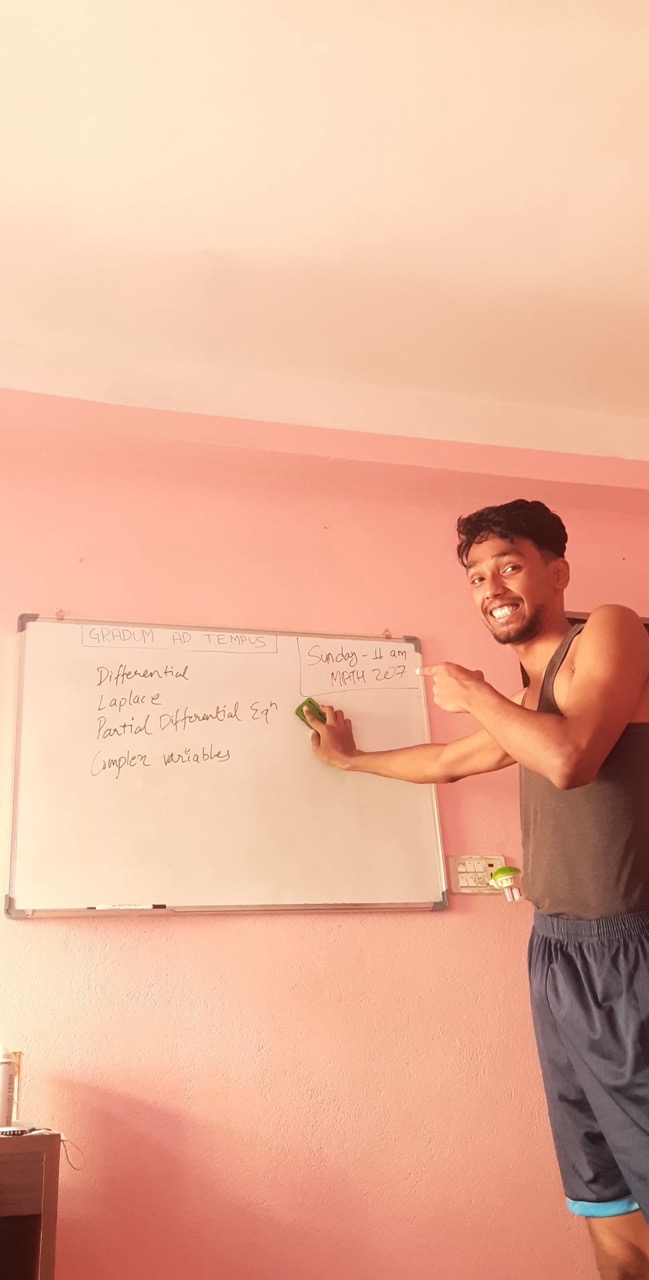 GRADUM AD TEMPUS
Sunday - 11 am
MATH 207
Differential
Laplace
Partial Differential Eqⁿ
Complex variables